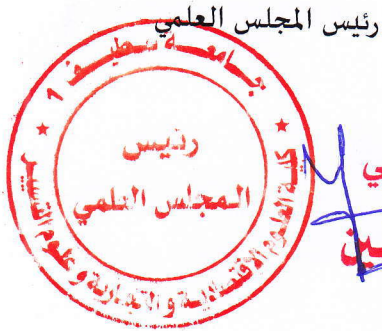 رئيس المجلس العلمي
جامعة سطيف 1
رئيس
المجلس العلمي
كلية العلوم الاقتصادية والتجارية وعلوم التسيير